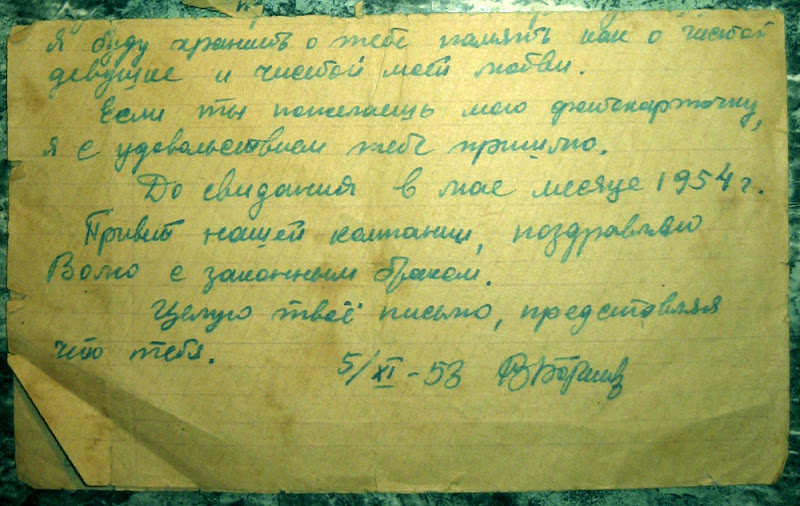 Я буду хранить о тебе память как о чистой
девушке и чистой моей любви.
Если ты пожелаешь мою фотокарточку,
я с удовольствием тебе пришлю.
До свидания в мае месяце 1954 г.
Привет нашей компании, поздравляю
Волю с законным браком.
Целую твоё письмо, представляя
что тебя.
5/XI-53